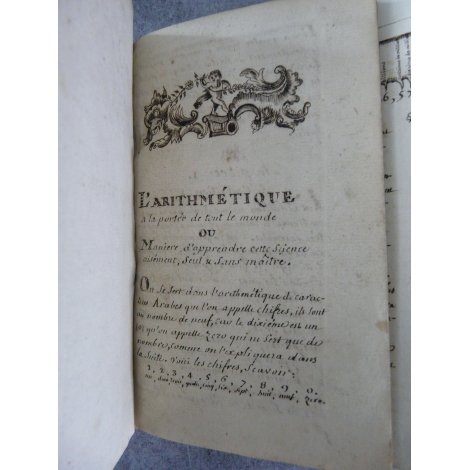 L'ARITHMÉTIQUE
a la portée de tout le monde
OU
Maniere d'apprendre cette Science
aisément, Seul & Sans maître.
On se sert dans l'arithmétique de carac-
Arabes que l'on appelle chifres, ils sont
au nombre de neuf, car le dixième est un
qu'on appelle Zero qui ne sert que de
nombres, comme on l'expliquera dans
la Suite. Voici les chifres, Scavoir:
1, 2, 3, 4, 5, 6, 7, 8, 9, 0.
un, deux, trois, quatre, cinq, six, sept, huit, neuf, Zero.
6, 5